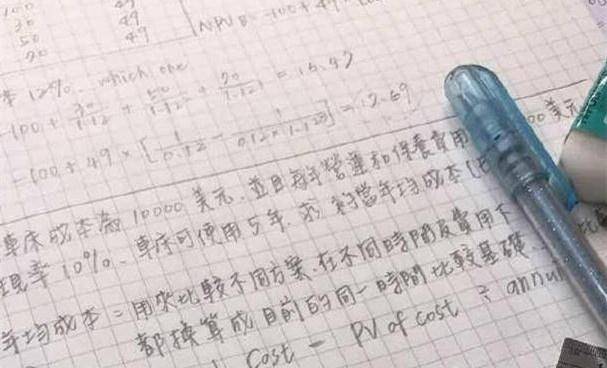 100 49
30 49
50 49
70 NPV B = -100 + 49
率 12%. which one
-100 + 30/1.12 + 50/1.12² + 70/1.12³ = 15.47
-100 + 49 × [1/0.12 - 1/0.12×1.12³] = 17.69
車床成本為 10000 美元, 並且每年營運和保養費用 00 美元
現率 10%. 車床可使用 5 年. 求 約當年均成本
年均成本 = 用來比較不同方案. 在不同時間及費用下 比較
都換算成目前的同一時間比較基礎
Cost = PV of cost ÷ annui